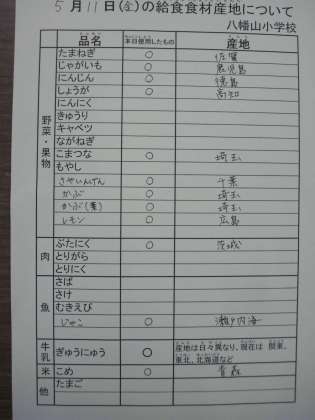 5月11日(金)の給食食材産地について
八幡山小学校
品名 本日使用したもの 産地
野菜・果物
たまねぎ ○ 佐賀
じゃがいも ○ 鹿児島
にんじん ○ 徳島
しょうが ○ 高知
にんにく
きゅうり
キャベツ
ながねぎ
こまつな ○ 埼玉
もやし
さやいんげん ○ 千葉
かぶ ○ 埼玉
かぶ(葉) ○ 埼玉
レモン ○ 広島
肉
ぶたにく ○ 茨城
とりがら
とりにく
魚
さば
さけ
むきえび
じゃこ ○ 瀬戸内海
牛乳 ぎゅうにゅう ○ 産地は日々異なり、現在は 関東、
東北、北海道など
米 こめ ○ 青森
他 たまご